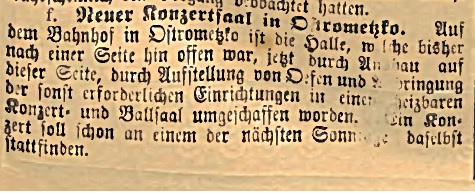 beobachtet hatten.
f. Neuer Konzertsaal in Ostrometzko. Auf
dem Bahnhof in Ostrometzko ist die Halle, welche bisher
nach einer Seite hin offen war, jetzt durch
dieser Seite, durch Aufstellung von Oefen und
der sonst erforderlichen Einrichtungen in einen heizbaren
Konzert- und Ballsaal umgeschaffen worden. Ein Kon-
zert soll schon an einem der nächsten Sonntage daselbst
stattfinden.